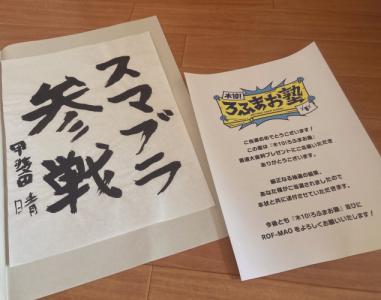 スマブラ
参戦
甲斐田 晴
木10!
ろふまお塾
ご当選おめでとうございます!
この度は『木10!ろふまお塾』
書道火皿料プレゼントにご応募いただき
ありがとうございます。
厳正なる抽選の結果、
あなた様がご当選されましたので
本状と共に送付させていただきます。
今後とも『木10!ろふまお塾』並びに
ROF-MAOをよろしくお願いいたします!